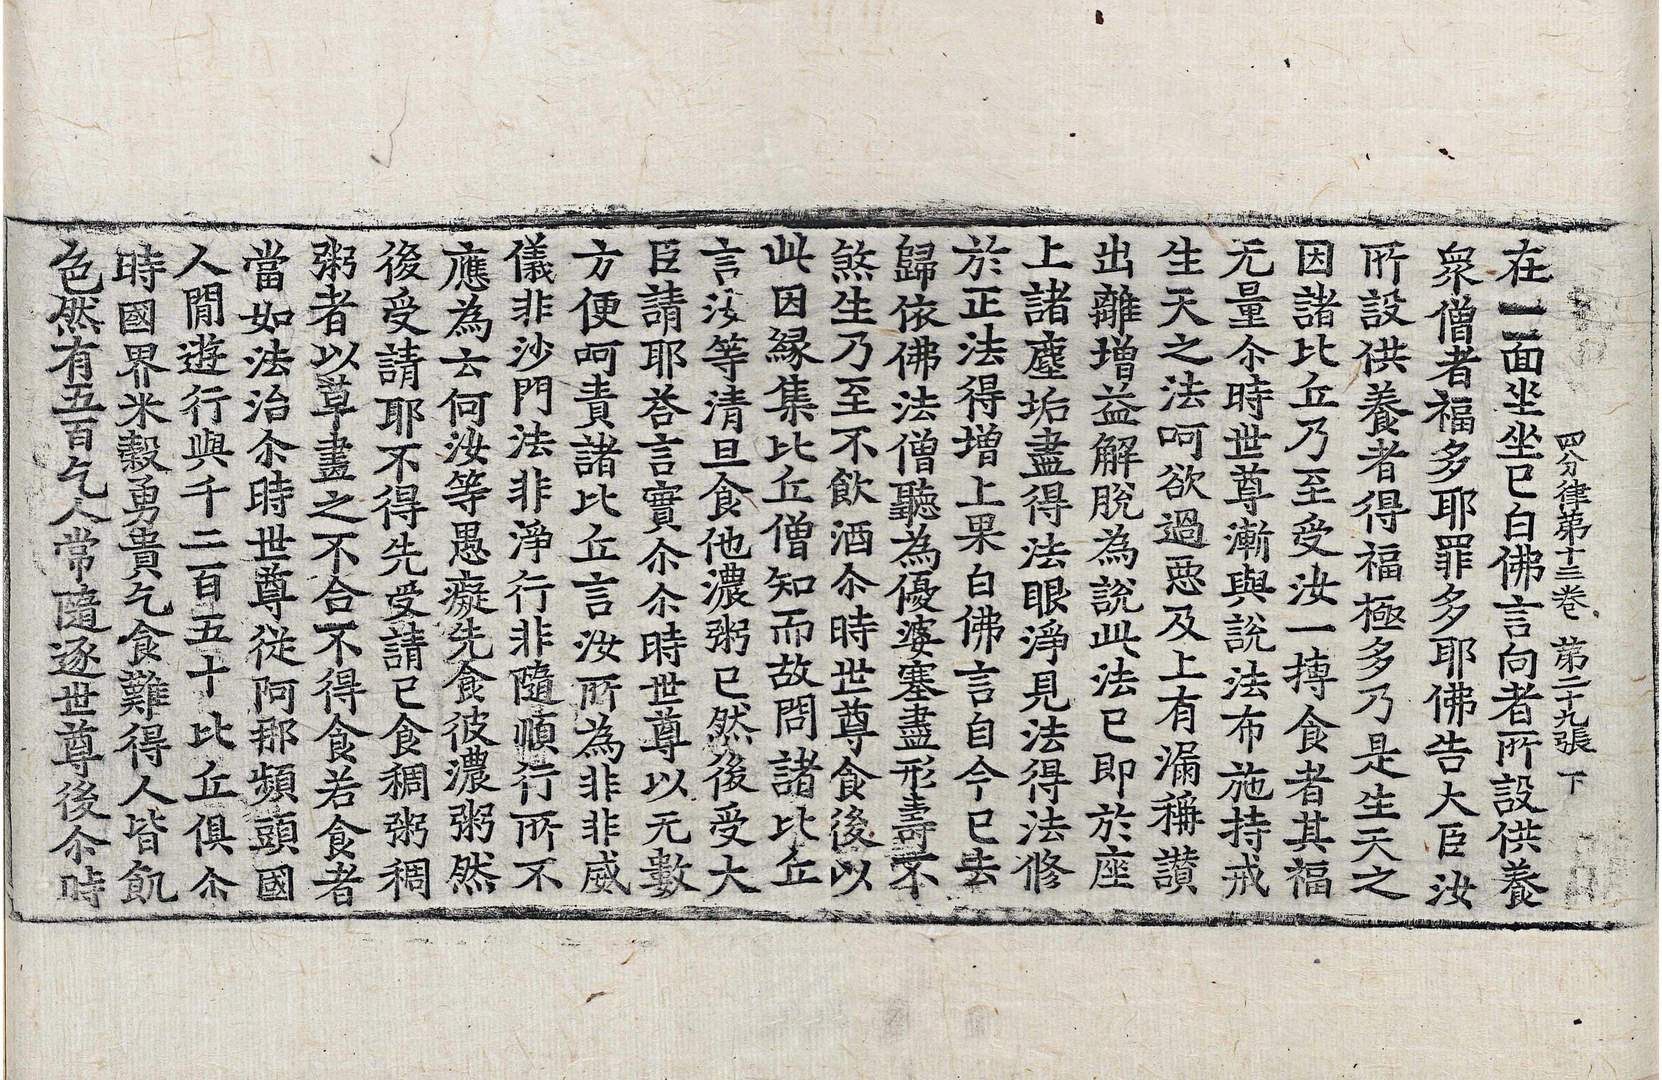 四分律第十三卷 第二十九張 下
在一面坐坐已白佛言向者所設供養
衆僧者福多耶罪多耶佛告大臣汝
所設供養者得福極多乃是生天之
因諸比丘乃至受汝一摶食者其福
无量尒時世尊漸與說法布施持戒
生天之法呵欲過惡及上有漏稱讃
出離增益解脫為說此法已即於座
上諸塵垢盡得法眼淨見法得法修
於正法得增上果白佛言自今已去
歸依佛法僧聽為優婆塞盡形壽不
煞生乃至不飲酒尒時世尊食後以
此因縁集比丘僧知而故問諸比丘
言汝等清旦食他濃粥已然後受大
臣請耶荅言實尒尒時世尊以无數
方便呵責諸比丘言汝所為非非威
儀非沙門法非淨行非隨順行所不
應為云何汝等愚癡先食彼濃粥然
後受請耶不得先受請已食稠粥稠
粥者以草畫之不合不得食若食者
當如法治尒時世尊從阿那頻頭國
人閒遊行與千二百五十比丘俱尒
時國界米穀勇貴乞食難得人皆飢
色然有五百乞人常隨逐世尊後尒時